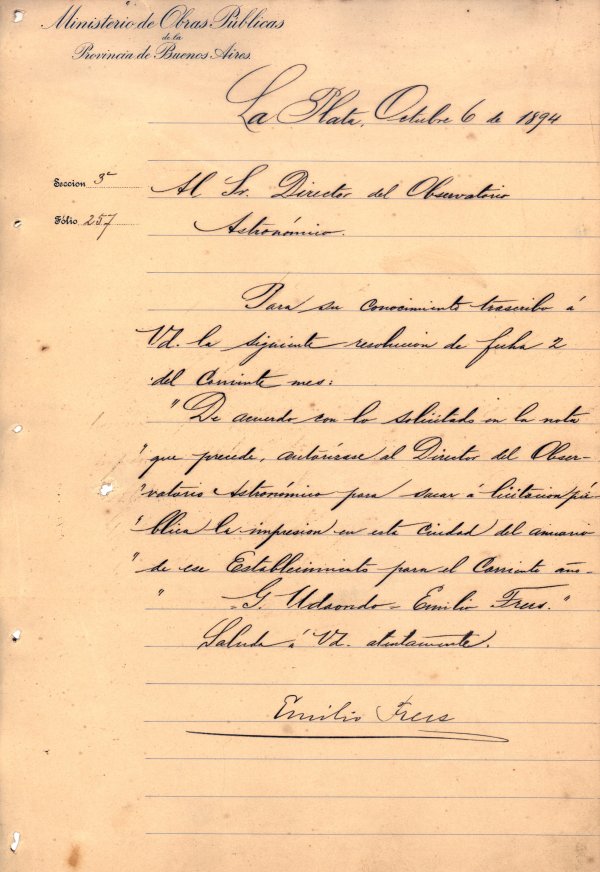 Ministerio de Obras Públicas
de la
Provincia de Buenos Aires.
La Plata, Octubre 6 de 1894
Seccion 3ª
Al Sr. Director del Observatorio
Fólio 257
Astronómico.
Para su conocimiento trascribo á
Vd. la siguiente resolucion de fecha 2
del corriente mes:
"De acuerdo con lo solicitado en la nota
"que precede, autorízase al Director del Obser-
"vatorio Astronómico para sacar á licitacion pú-
"blica la impresion en esta ciudad del anuario
"de ese Establecimiento para el corriente año-
" -G. Udaondo- Emilio Frers."
Saluda á Vd. atentamente.
Emilio Frers